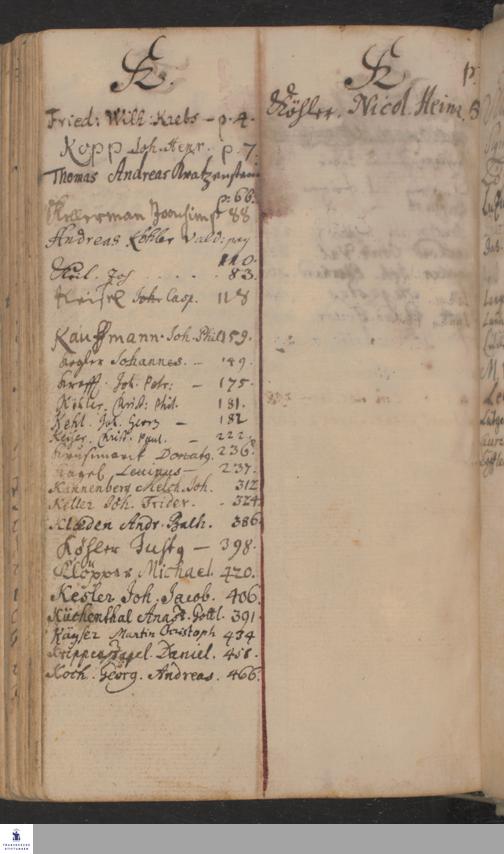 K.
Fried: Will: Krebs – p. 4.
Kopp Joh. Henr. p. 7.
Thomas Andreas Kratzenstein
p. 66.
Kellerman Joachim p 88
Andreas Köhler Vald: pag
110.
Keil. Joh . . . . . 83.
Keisel Joh. Casp. 118
Kauffmann. Joh. Phil. 159.
Kegler Johannes. – 149.
Krafft. Joh. Petr: – 175.
Köhler. Christ: Phil. 181.
Kehl. Joh. Georg – 182
Keyser. Christ. Paul. – 222.
Krusemarck Donatg. 236.
Kagel Levinus – 237.
Kannenberg Melch. Joh. 312
Keller Joh. Frider. . 324
Klæden Andr. Balth. 386
Kösler Justg – 398.
Klöpper Michael. 420.
Kesler Joh. Jacob. 406.
Küchenthal Anast. Gottl. 391
Käyser Martin Christoph 454
Krippenstapel. Daniel. 458.
Koch. Georg. Andreas. 466.
K p.
Köhler. Nicol. Heinr. 8
FRANCKESCHE
STIFTUNGEN